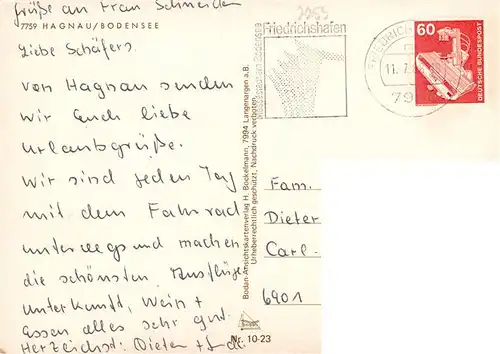 Grüße an Frau Schneider
7759 HAGNAU/BODENSEE
Liebe Schäfers.
von Hagnau senden
wir Euch liebe
Urlaubsgrüße.
Wir sind jeden Tag
mit dem Fahrrad
unterwegs und machen
die schönsten Ausflüge
Unterkunft, Wein +
Essen alles sehr gut.
Herzlichst: Dieter +
Bodan-Ansichtskartenverlag H. Bockelmann, 7994 Langenargen a.B.
Urheberrechtlich geschützt. Nachdruck verboten.
Nr. 10-23
3059
Friedrichshafen
FRIEDRICHS
11.7.
79
60
DEUTSCHE BUNDESPOST
Fam.
Dieter
Carl-
6901